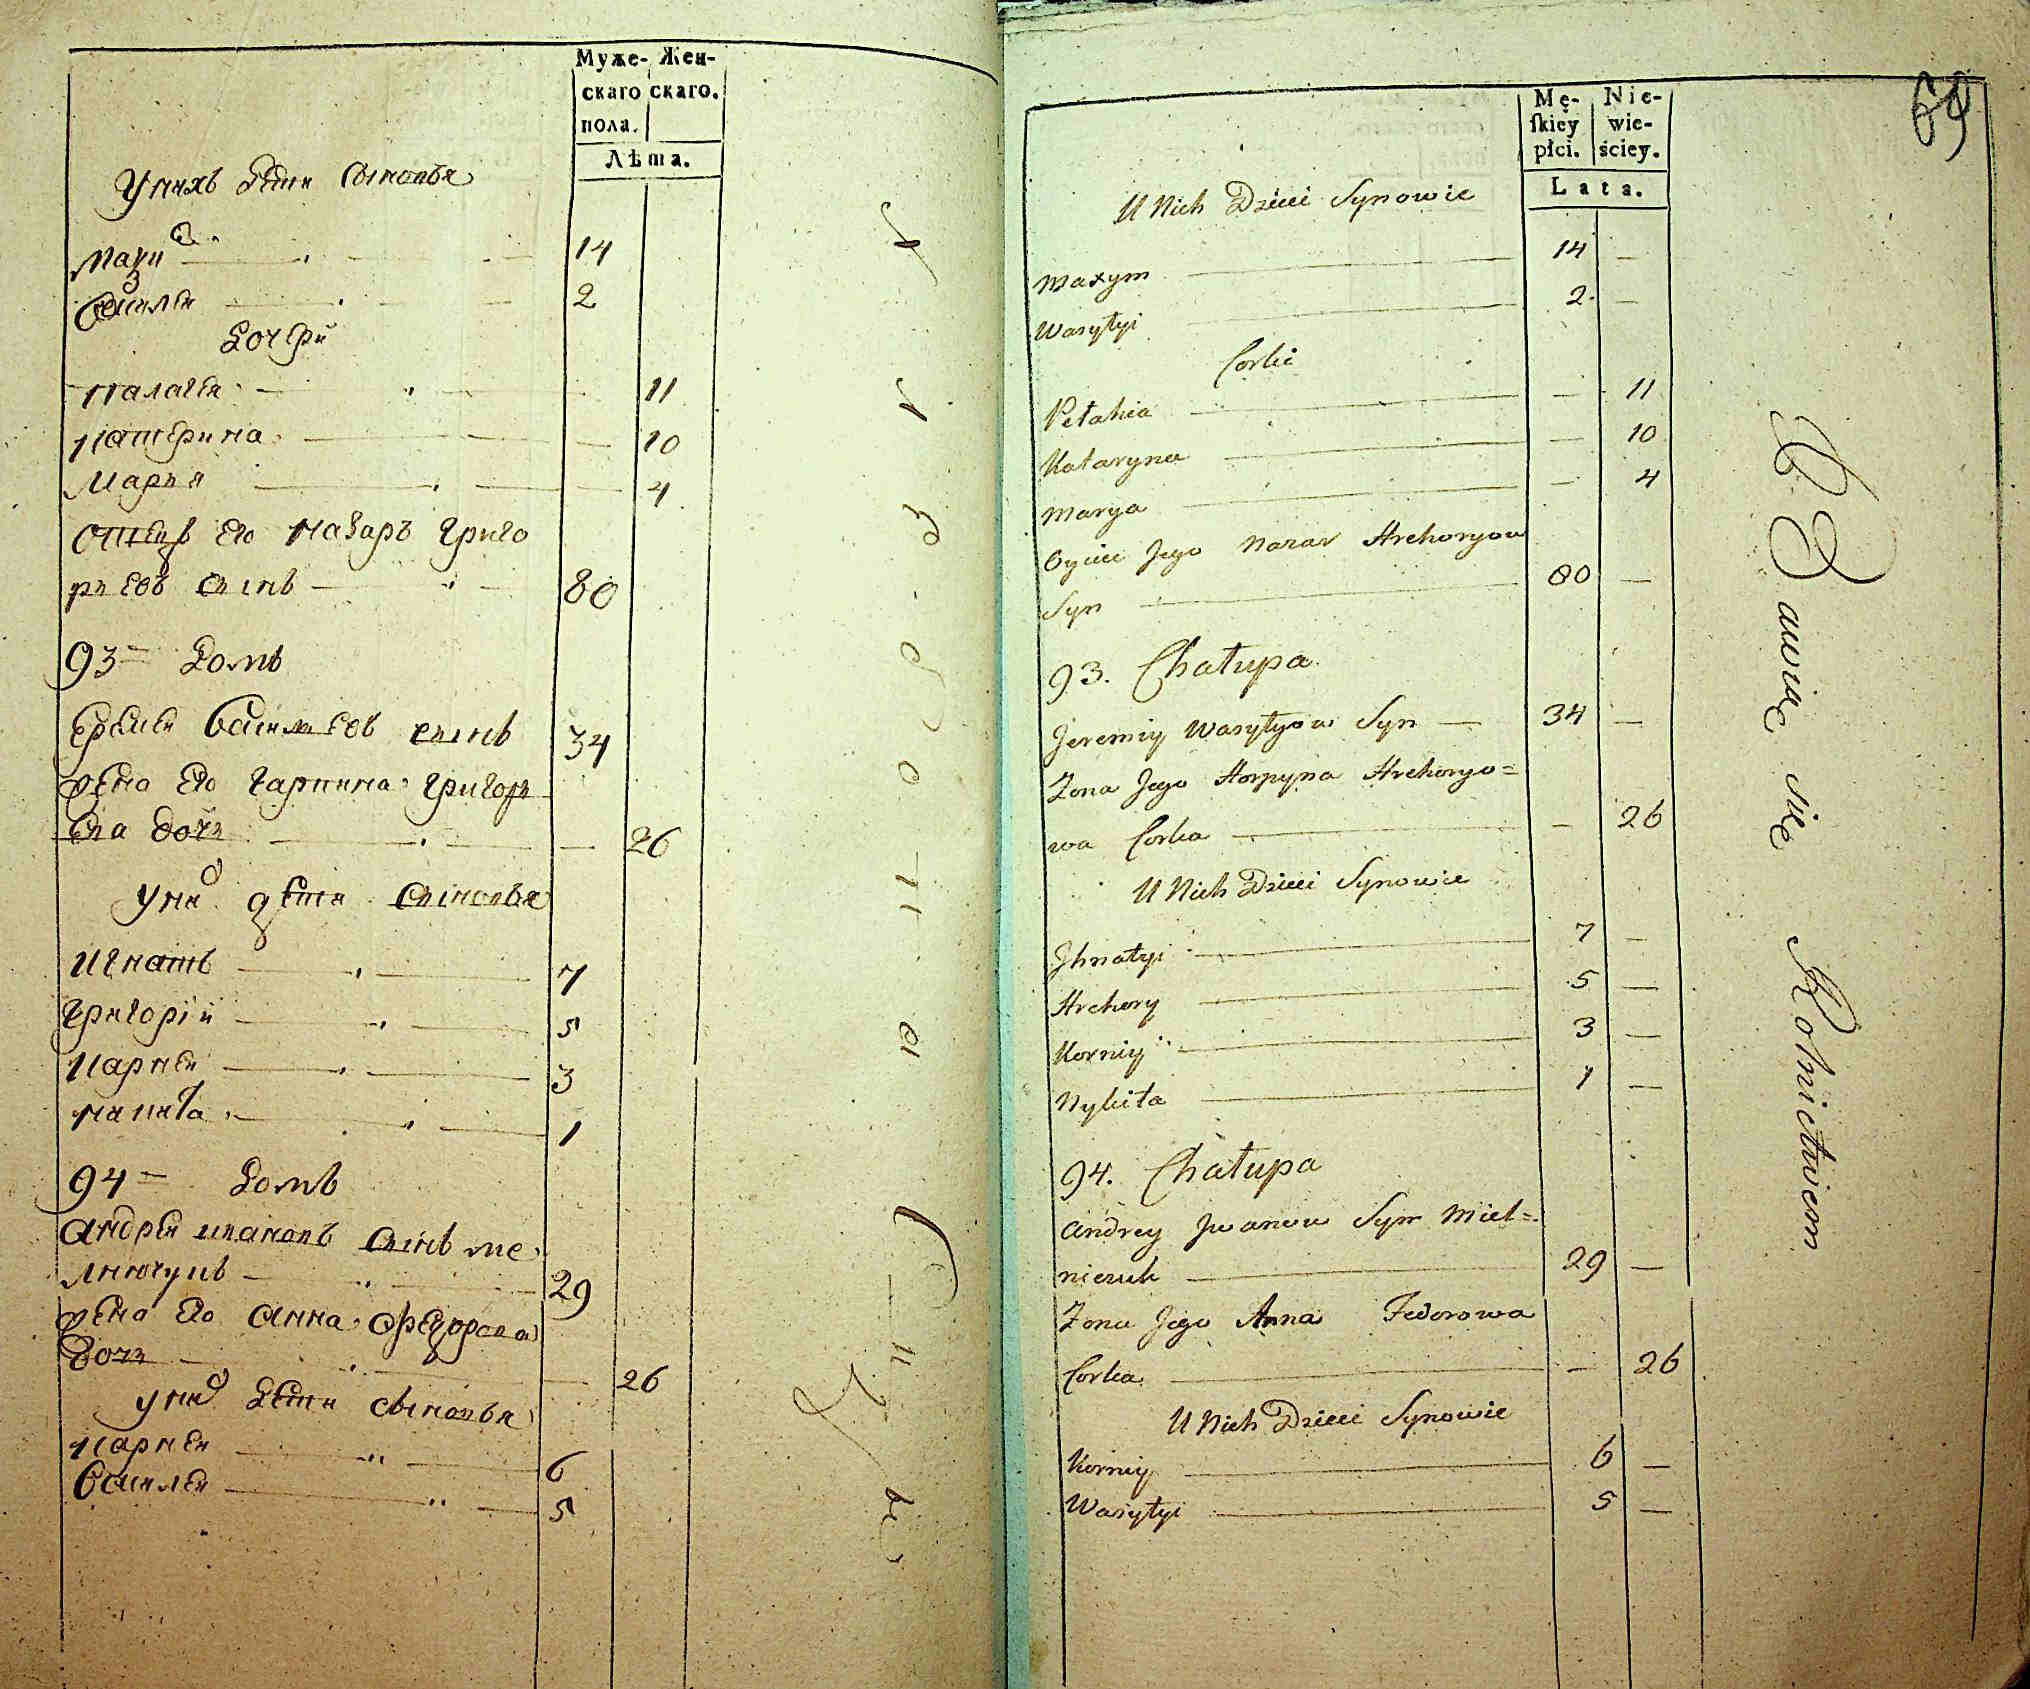 Муже- Жен-
скаго скаго.
пола.
Лѣта.
У нихъ дети сыновья
Мази 14
Василеи 2
дочери
Палагея 11
Катерина 10
Мария 4
Отецъ Его Назаръ Григо
риевъ сынъ 80
93 домъ
Еремеи Василиевъ сынъ 34
жена Его Гарпина Григори
ева дочь 26
У них дети сыновья
Игнатъ 7
Григорiй 5
Карнеи 3
Никита 1
94 домъ
Андреи Ивановъ сынъ ме
лничукъ 29
жена Его Анна Федорова
дочь 26
У них дети сыновья
Карнеи 6
Василеи 5
69
Mę- Nie-
ſkiey wie-
płci. ściey.
Lata.
U Nich Dzieci Synowie
Maxym 14 —
Wasyłyi 2 —
Corki
Pełahia — 11
Kataryna — 10
Marya — 4
Oyciec Jego Nazar Hrehoryow
Syn 80 —
93. Chałupa
Jeremiy Wasyłyow Syn 34 —
Zona Jego Horpyna Hrehoryo=
wa Corka — 26
U Nich Dzieci Synowie
Jhnatyi 7 —
Hrehory 5 —
Korniy 3 —
Nykita 1 —
94. Chałupa
Andrey Jwanow Syn Miel=
niczuk 29 —
Zona Jego Anna Fedorowa
Corka — 26
U Nich Dzieci Synowie
Korniy 6 —
Wasyłyi 5 —
Bawią się Rolnictwem